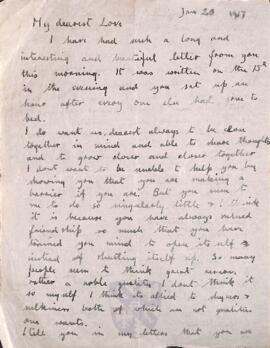 Jan 20 1917
My dearest Love
I have had such a long and
interesting and beautiful letter from you
this morning. It was written on the 15th
in the evening and you sat up an
hour after every one else had gone to
bed.
I do want us, dearest always to be close
together in mind and able to share thoughts
and to grow closer and closer together
I dont want to be unable to help you by
showing you that you are making a
barrier if you are. But you seem to
me to do so singularly little & I think
it is because you have always valued
friendship so much that you have
trained you mind to open itself &
instead of shutting itself up. So many
people seem to think great reserve
rather a noble quality I dont think it
so myself I think its allied to shyness &
sulkiness both of which are not qualities
one wants.
I tell you in my letters that you are